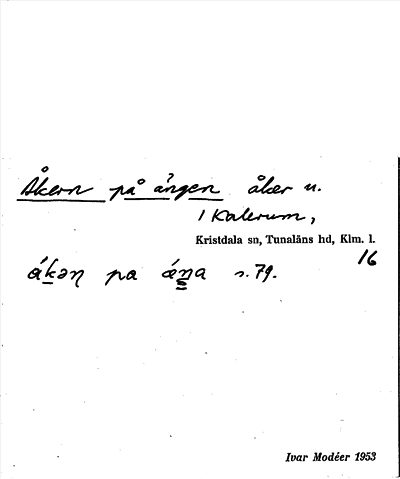 Åkern på ängen åker n.
i Kalerum,
Kristdala sn, Tunaläns hd, Klm. l.
16
ákəṇ pa ǽŋa s. 79.
Ivar Modéer 1953